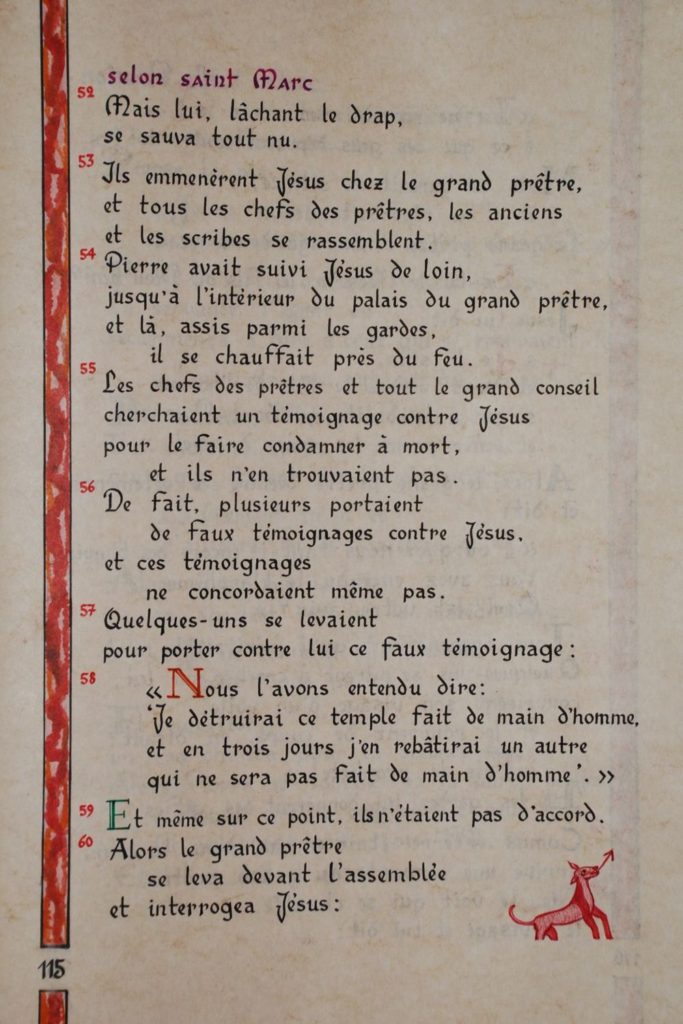 selon saint Marc
52
Mais lui, lâchant le drap,
se sauva tout nu.
53
Ils emmenèrent Jésus chez le grand prêtre,
et tous les chefs des prêtres, les anciens
et les scribes se rassemblent.
54
Pierre avait suivi Jésus de loin,
jusqu'à l'intérieur du palais du grand prêtre,
et là, assis parmi les gardes,
il se chauffait près du feu.
55
Les chefs des prêtres et tout le grand conseil
cherchaient un témoignage contre Jésus
pour le faire condamner à mort,
et ils n'en trouvaient pas.
56
De fait, plusieurs portaient
de faux témoignages contre Jésus,
et ces témoignages
ne concordaient même pas.
57
Quelques-uns se levaient
pour porter contre lui ce faux témoignage :
58
« Nous l'avons entendu dire:
'Je détruirai ce temple fait de main d'homme,
et en trois jours j'en rebâtirai un autre
qui ne sera pas fait de main d'homme'. »
59
Et même sur ce point, ils n'étaient pas d'accord.
60
Alors le grand prêtre
se leva devant l'assemblée
et interrogea Jésus :
115